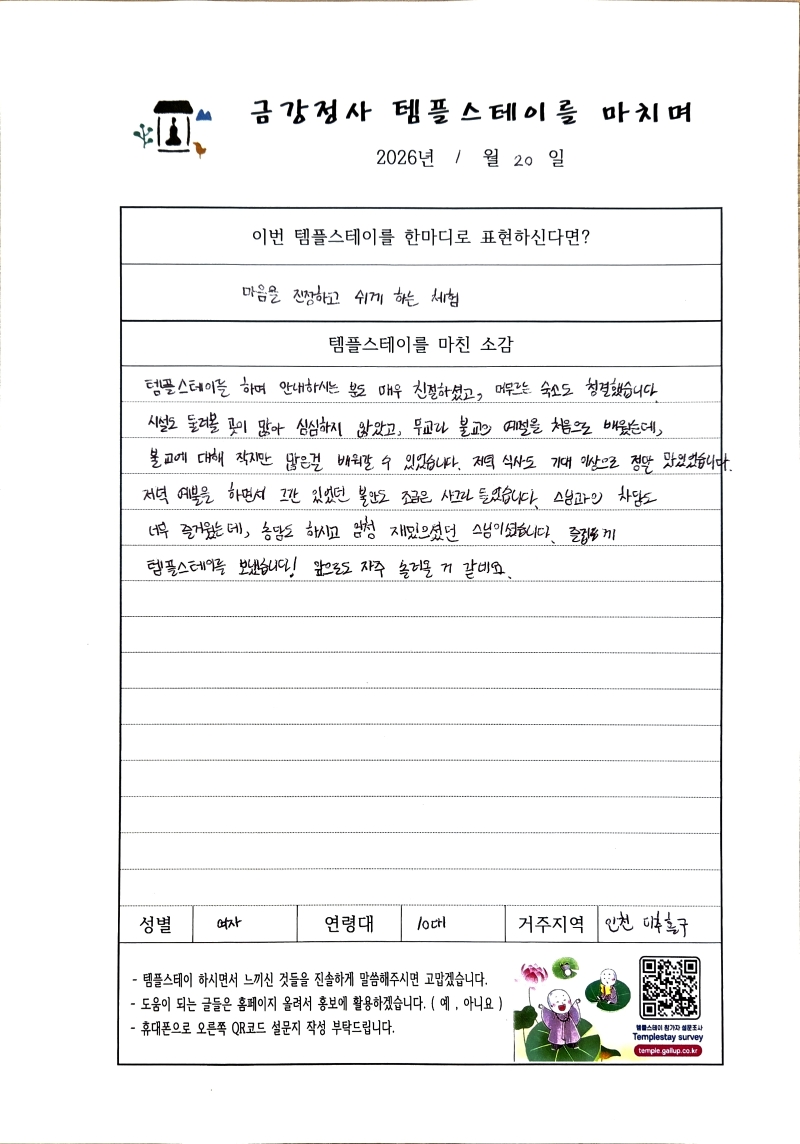 금강정사 템플스테이를 마치며
2026년 1 월 20 일
이번 템플스테이를 한마디로 표현하신다면?
마음을 진정하고 쉬게 하는 체험
템플스테이를 마친 소감
템플스테이를 하며 안내하시는 분도 매우 친절하셨고, 머무르는 숙소도 청결했습니다.
시설도 둘러볼 곳이 많아 심심하지 않았고, 무교라 불교의 예절을 처음으로 배웠는데,
불교에 대해 작지만 많은걸 배워갈 수 있었습니다. 저녁 식사도 기대 이상으로 정말 맛있었습니다.
저녁 예불을 하면서 그간 있었던 불안도 조금은 사그라 들었습니다. 스님과의 차담도
너무 즐거웠는데, 농담도 하시고 엄청 재밌으셨던 스님이셨습니다. 즐겁게
템플스테이를 보냈습니다! 앞으로도 자주 놀러올 거 같네요.
성별 여자 연령대 10대 거주지역 인천 미추홀구
- 템플스테이 하시면서 느끼신 것들을 진솔하게 말씀해주시면 고맙겠습니다.
- 도움이 되는 글들은 홈페이지 올려서 홍보에 활용하겠습니다. ( 예 , 아니요 )
- 휴대폰으로 오른쪽 QR코드 설문지 작성 부탁드립니다.
템플스테이 참가자 설문조사
Templestay survey
temple.gallup.co.kr